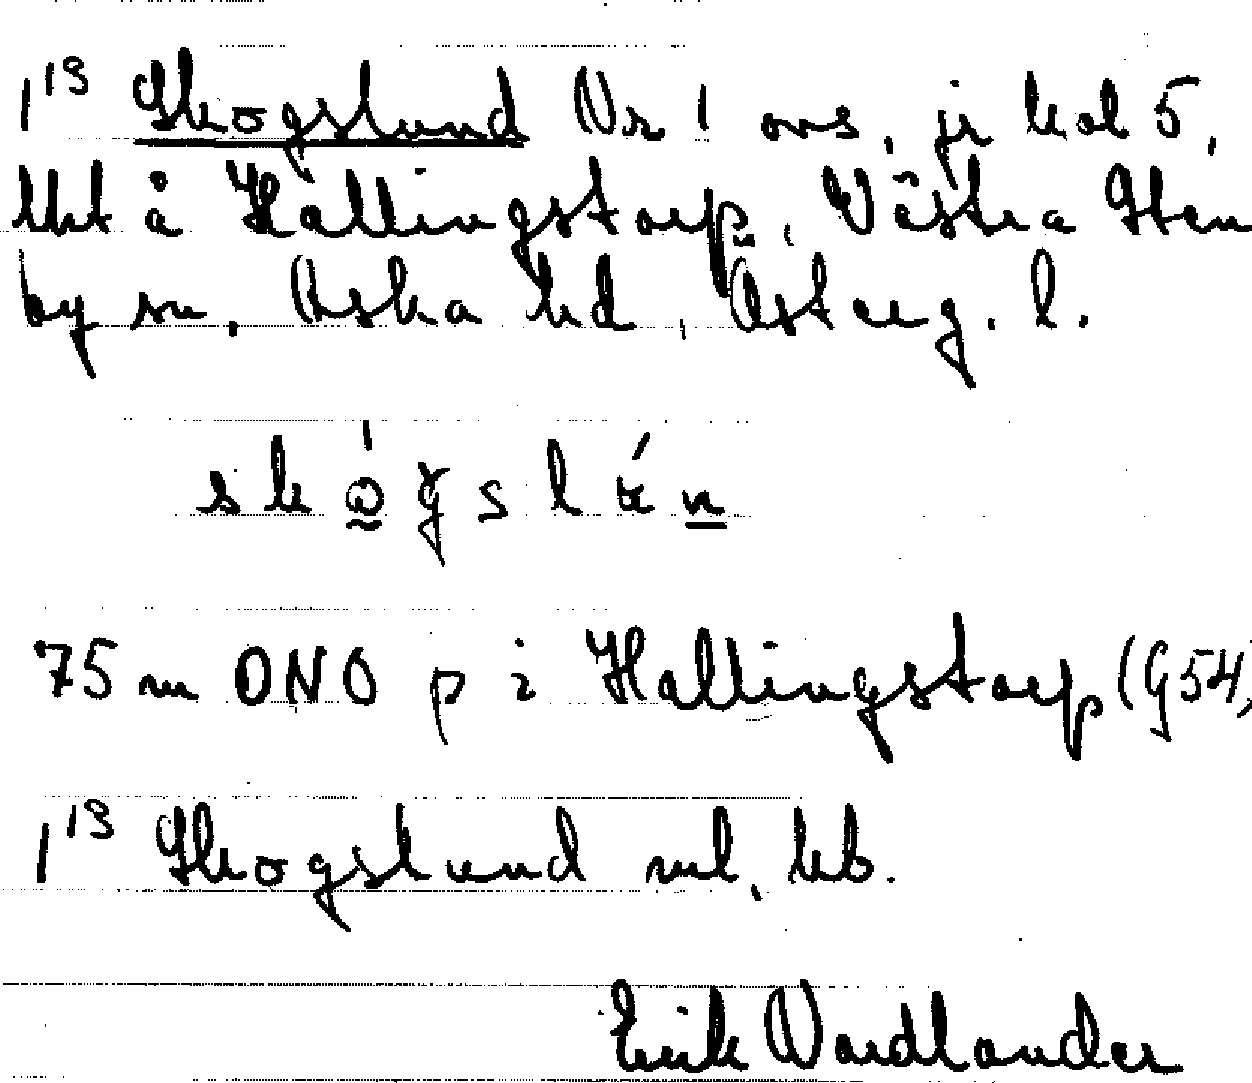 1¹³ Skogslund Nr 1 ovs, jr kol 5,
lht å Hällingstorp, Västra Sten
by sn, Aska hd, Österg. l.
skógslún
75 m ONO p i Hallingstorp (G54,
1¹³ Skogslund ml, hb.
Erik Wardlander